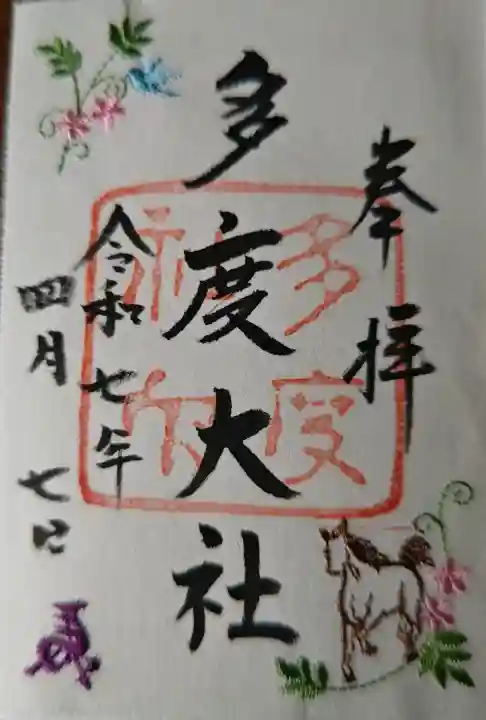 奉拝
多度大社
令和七年
四月七日
多度